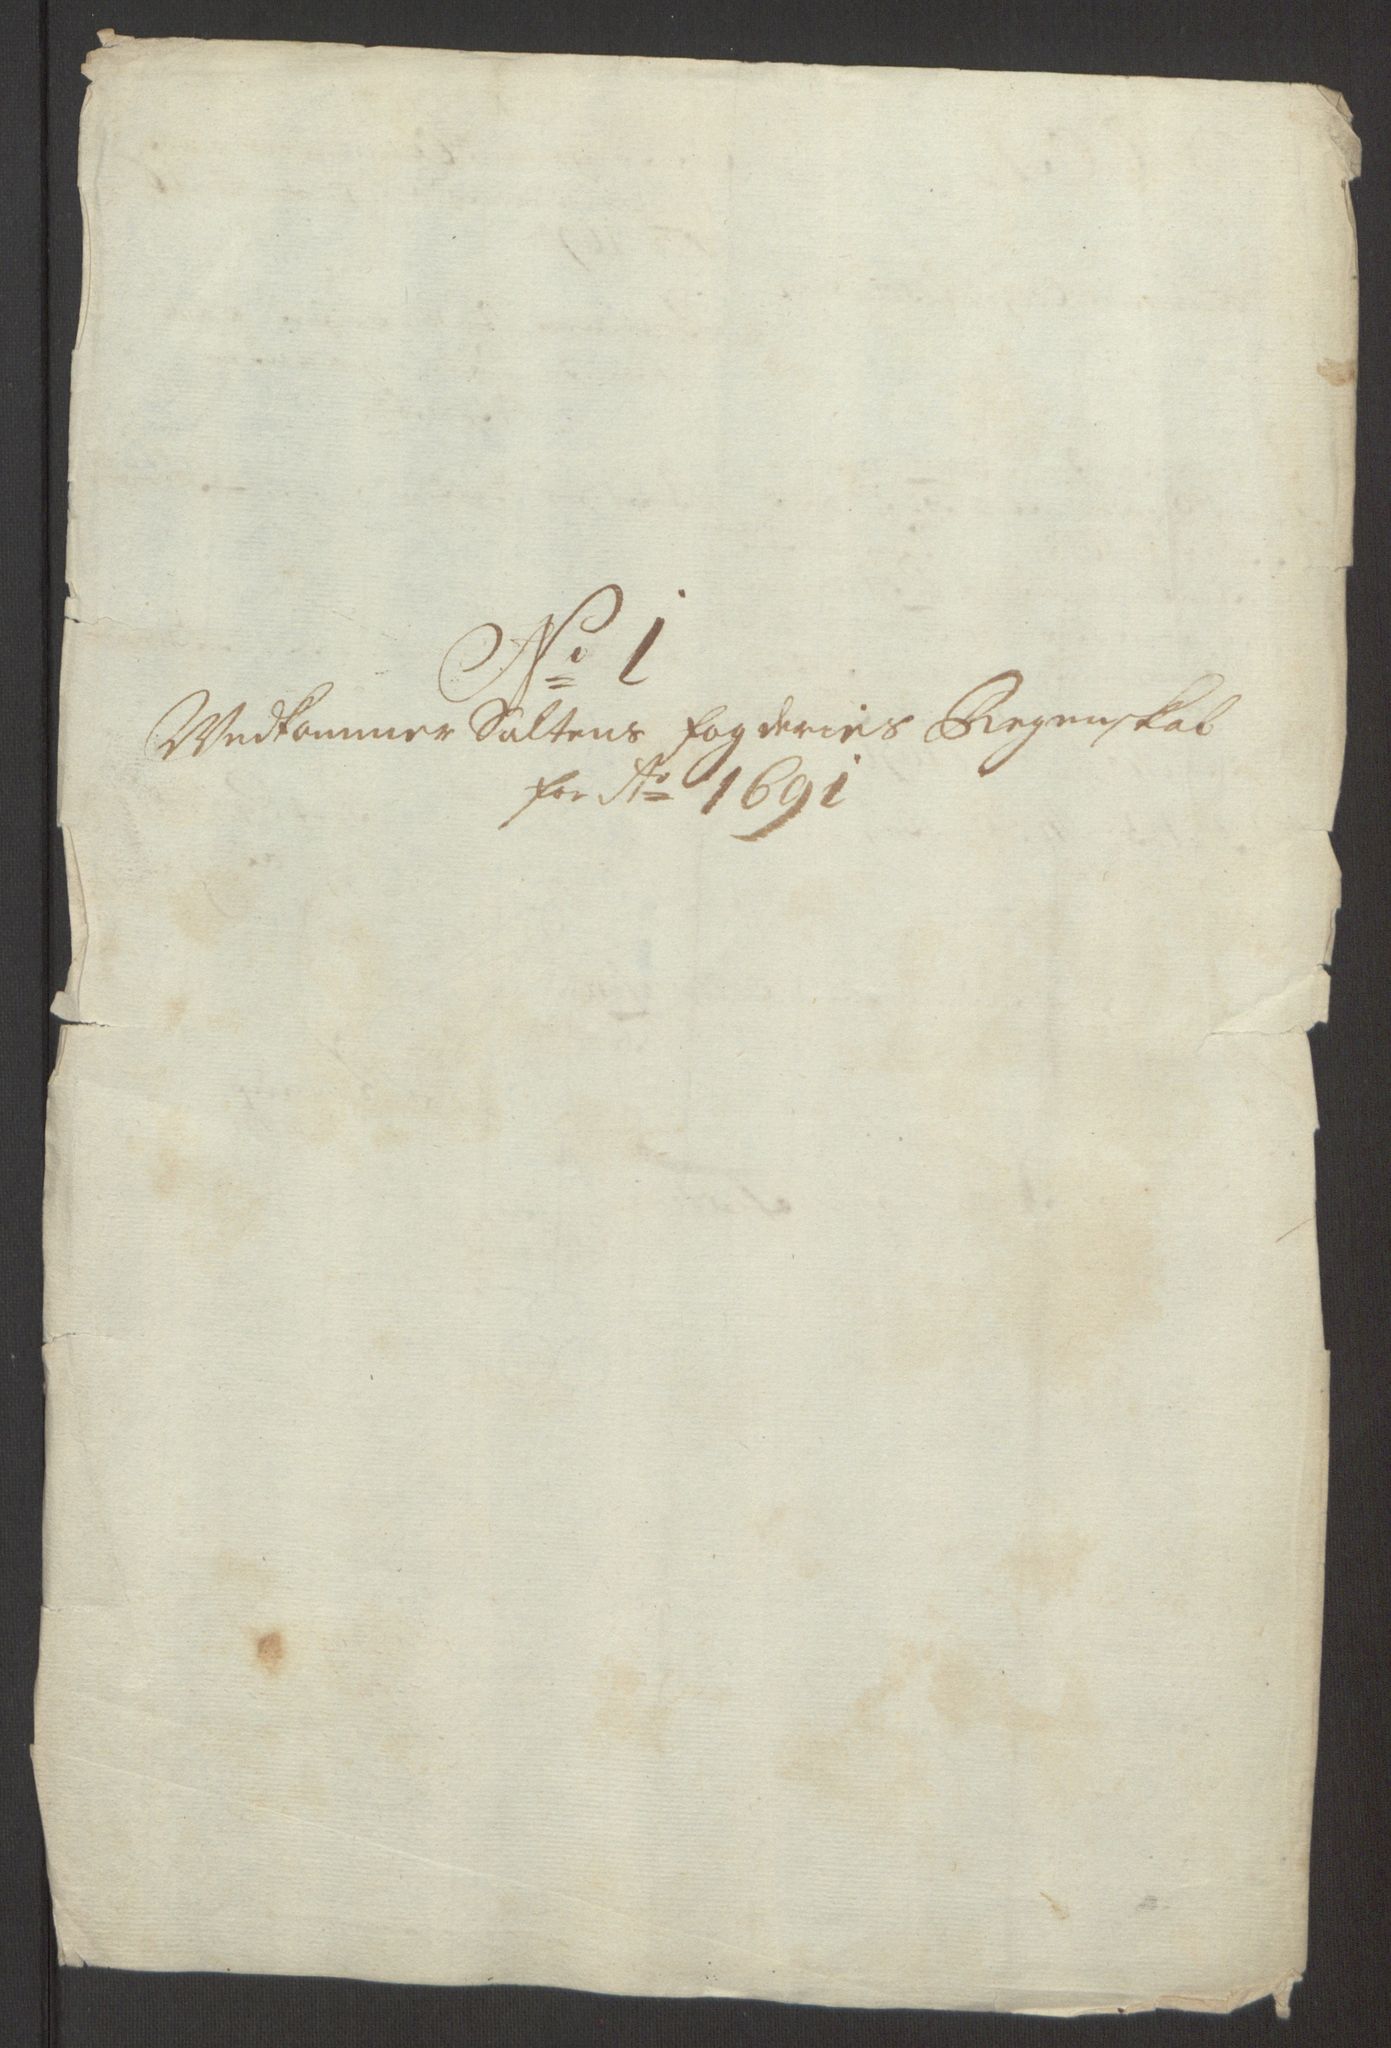 No: 1
Wedkommer Saltens fogderies Regenskab
for Ao 1691